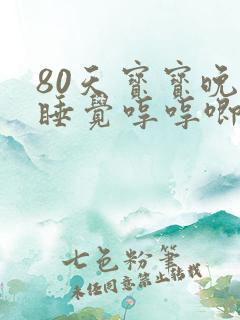 80天宝宝晚
睡觉哼哼唧
七色粉笔
未经同意禁止转载